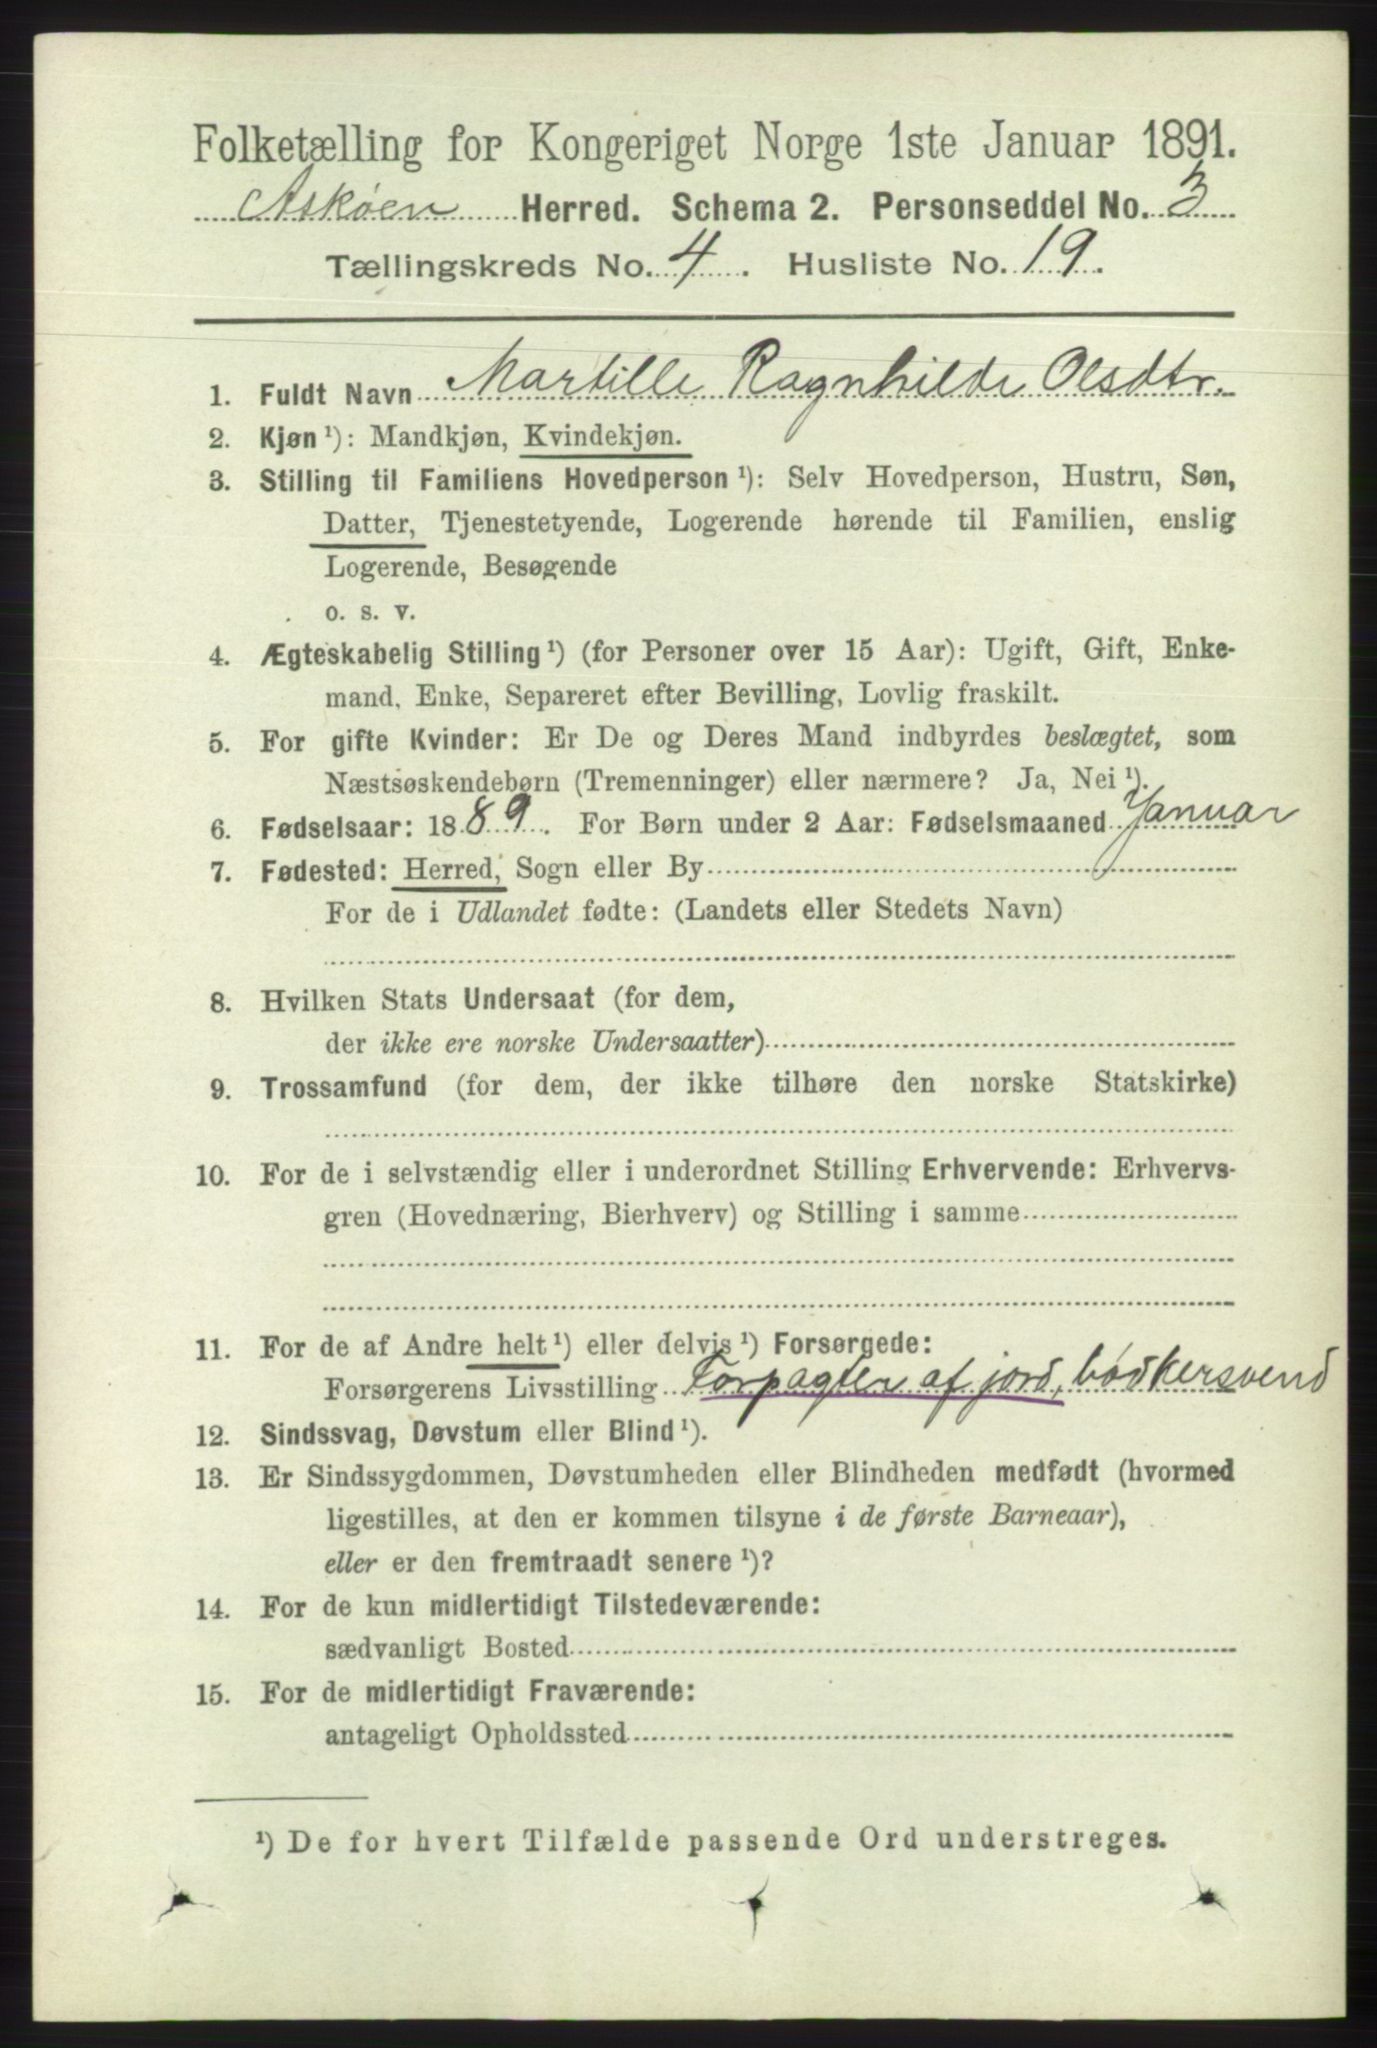 Folketælling for Kongeriget Norge 1ste Januar 1891.
Askøen Herred. Schema 2. Personseddel No. 3
Tællingskreds No. 4. Husliste No. 19.
1. Fuldt Navn Martille Ragnhilde Olsdtr.
2. Kjøn ¹): Mandkjøn, Kvindekjøn.
3. Stilling til Familiens Hovedperson ¹): Selv Hovedperson, Hustru, Søn,
Datter, Tjenestetyende, Logerende hørende til Familien, enslig
Logerende, Besøgende
o. s. v.
4. Ægteskabelig Stilling ¹) (for Personer over 15 Aar): Ugift, Gift, Enke-
mand, Enke, Separeret efter Bevilling, Lovlig fraskilt.
5. For gifte Kvinder: Er De og Deres Mand indbyrdes beslægtet, som
Næstsøskendebørn (Tremenninger) eller nærmere? Ja, Nei ¹).
6. Fødselsaar: 1889. For Børn under 2 Aar: Fødselsmaaned Januar
7. Fødested: Herred, Sogn eller By
For de i Udlandet fødte: (Landets eller Stedets Navn)
8. Hvilken Stats Undersaat (for dem,
der ikke ere norske Undersaatter)
9. Trossamfund (for dem, der ikke tilhøre den norske Statskirke)
10. For de i selvstændig eller i underordnet Stilling Erhvervende: Erhvervs-
gren (Hovednæring, Bierhverv) og Stilling i samme
11. For de af Andre helt ¹) eller delvis ¹) Forsørgede:
Forsørgerens Livsstilling Forpagter af jord, bødkersvend
12. Sindssvag, Døvstum eller Blind ¹).
13. Er Sindssygdommen, Døvstumheden eller Blindheden medfødt (hvormed
ligestilles, at den er kommen tilsyne i de første Barneaar),
eller er den fremtraadt senere ¹)?
14. For de kun midlertidigt Tilstedeværende:
sædvanligt Bosted
15. For de midlertidigt Fraværende:
antageligt Opholdssted
¹) De for hvert Tilfælde passende Ord understreges.